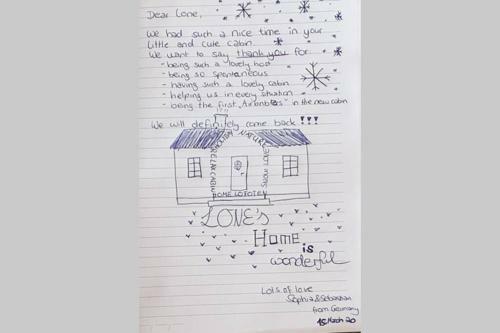 Dear Lone,
We had such a nice time in your
little and cute cabin.
We want to say thank you for:
- being such a lovely host
- being so spontaneous
- having such a lovely cabin
- helping us in every situation
- being the first "Airbnbers" in the new cabin
We will definitely come back!!!
NATURE
RELAX
CABIN
HOME LOFOTEN
LONE's
Home
is
wonderful
Lots of love
Sophia & Sebastian
from Germany
15 March 20